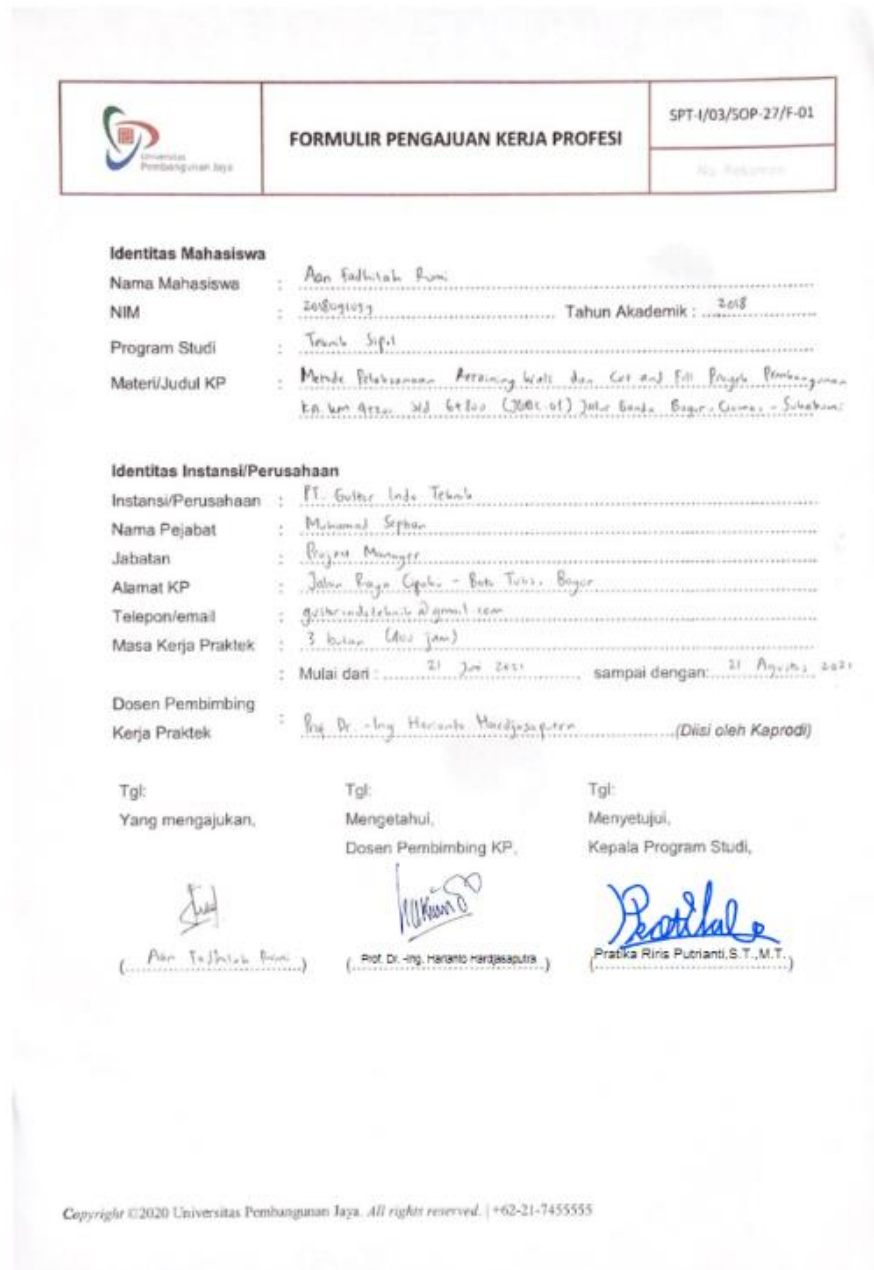 Universitas
Pembangunan Jaya
FORMULIR PENGAJUAN KERJA PROFESI
SPT-I/03/SOP-27/F-01
No. Rekaman
Identitas Mahasiswa
Nama Mahasiswa : Aan Fadhilah Rumi
NIM : 2018091059 Tahun Akademik : 2018
Program Studi : Teknik Sipil
Materi/Judul KP : Metode Pelaksanaan Retaining Wall dan Cut and Fill Proyek Pembangunan
KA km Sd 6+800 Jalur Ganda Bogor - Sukabumi
Identitas Instansi/Perusahaan
Instansi/Perusahaan : PT. Gultor Indo Teknik
Nama Pejabat : Muhamad
Jabatan : Project Manager
Alamat KP : Jalan Raya - Batu Tulis, Bogor
Telepon/email : @gmail.com
Masa Kerja Praktek : 3 bulan (400 jam)
: Mulai dari : 21 2021 sampai dengan: 21 Agustus 2021
Dosen Pembimbing
Kerja Praktek : Prof Dr. -Ing Harianto Hardjasaputra (Diisi oleh Kaprodi)
Tgl: Tgl: Tgl:
Yang mengajukan, Mengetahui, Menyetujui,
Dosen Pembimbing KP, Kepala Program Studi,
(Aan Fadhilah Rumi) (Prof. Dr. -Ing. Harianto Hardjasaputra) (Pratika Riris Putrianti,S.T.,M.T.)
Copyright ©2020 Universitas Pembangunan Jaya. All rights reserved. | +62-21-7455555